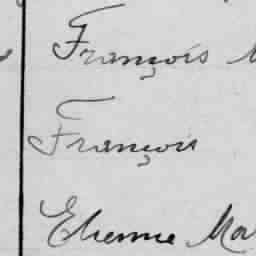 François
François
Etienne